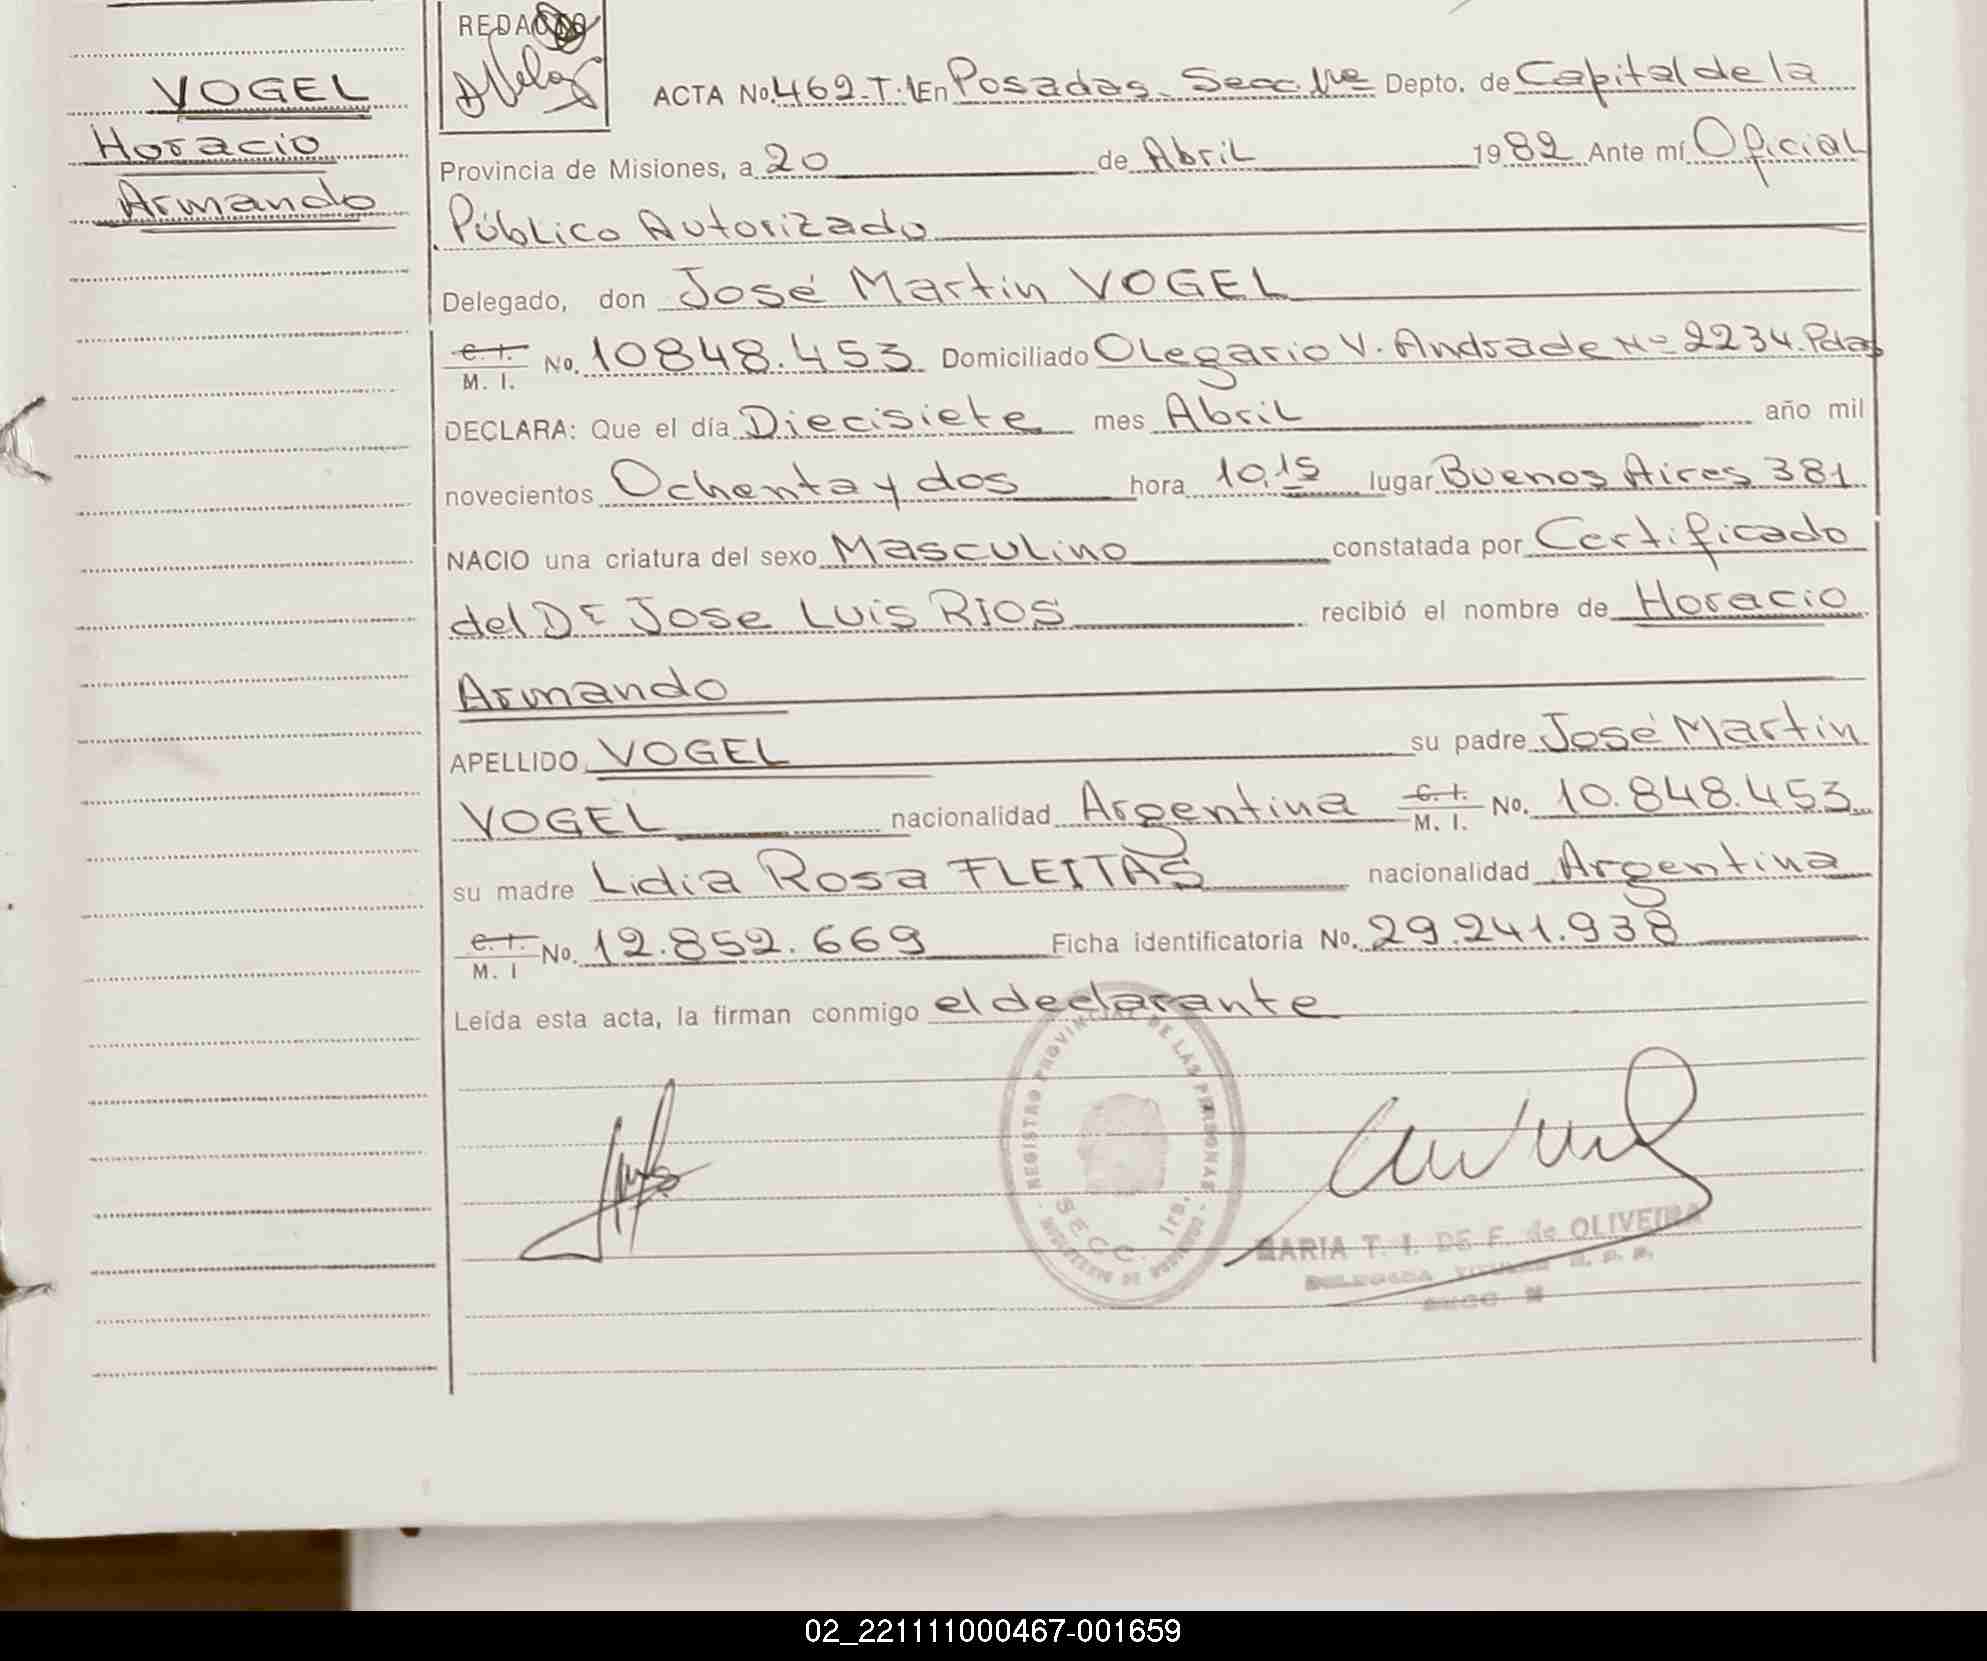 VOGEL
Horacio
Armando
REDACTO
ACTA No. 462-T.1 En Posadas. Secc. 1ra Depto. de Capital de la
Provincia de Misiones, a 20 de Abril 1982 Ante mí Oficial
Público Autorizado
Delegado, don José Martin VOGEL
C. I. M. I. No. 10848.453 Domiciliado Olegario V. Andrade Nº 2234. Pdas
DECLARA: Que el día Diecisiete mes Abril año mil
novecientos Ochenta y dos hora 10,15 lugar Buenos Aires 381
NACIO una criatura del sexo Masculino constatada por Certificado
del Dr Jose Luis RIOS recibió el nombre de Horacio
Armando
APELLIDO VOGEL su padre José Martin
VOGEL nacionalidad Argentina C. I. M. I. No. 10.848.453
su madre Lidia Rosa FLEITAS nacionalidad Argentina
C. I. M. I No. 12.852.669 Ficha identificatoria No. 29.241.938
Leída esta acta, la firman conmigo el declarante
REGISTRO PROVINCIAL DE LAS PERSONAS
SECC. 1ra.
MARIA T. I. DE F. de OLIVEIRA
02_221111000467-001659